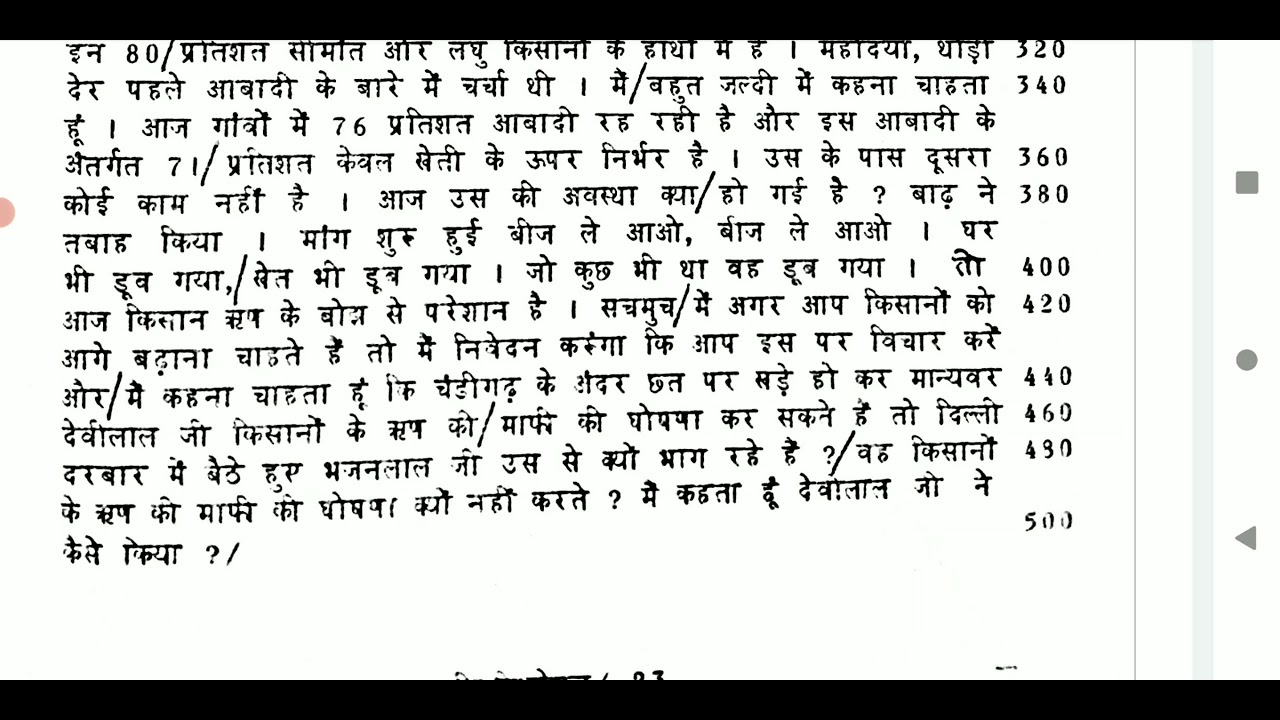 इन 80/प्रतिशत सीमांत और लघु किसानों के हाथों में है । महोदया, थोड़ी 320
देर पहले आबादी के बारे में चर्चा थी । मैं/बहुत जल्दी में कहना चाहता 340
हूं । आज गांवों में 76 प्रतिशत आबादी रह रही है और इस आबादी के
अंतर्गत 71/प्रतिशत केवल खेती के ऊपर निर्भर है । उस के पास दूसरा 360
कोई काम नहीं है । आज उस की अवस्था क्या/हो गई है ? बाढ़ ने 380
तबाह किया । मांग शुरू हुई बीज ले आओ, बीज ले आओ । घर
भी डूब गया,/खेत भी डूब गया । जो कुछ भी था वह डूब गया । तो 400
आज किसान ऋण के बोझ से परेशान है । सचमुच/में अगर आप किसानों को 420
आगे बढ़ाना चाहते हैं तो मैं निवेदन करूंगा कि आप इस पर विचार करें
और/मैं कहना चाहता हूं कि चंडीगढ़ के अंदर छत पर खड़े हो कर मान्यवर 440
देवीलाल जी किसानों के ऋण की/माफी की घोषणा कर सकते हैं तो दिल्ली 460
दरबार में बैठे हुए भजनलाल जी उस से क्यों भाग रहे हैं ?/वह किसानों 480
के ऋण की माफी की घोषणा क्यों नहीं करते ? मैं कहता हूं देवीलाल जी ने
कैसे किया ?/ 500